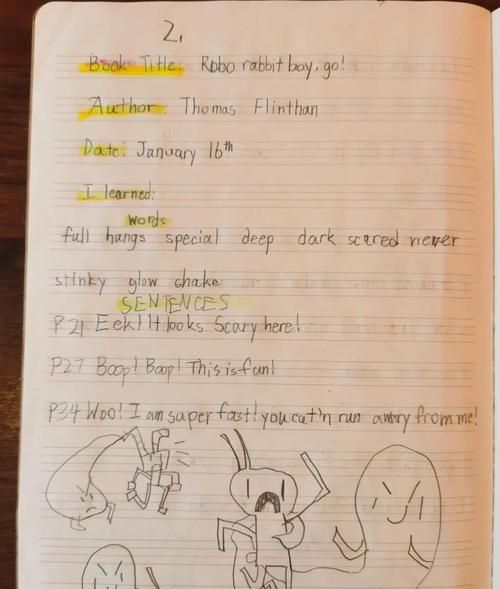 2.
Book Title: Robo rabbit boy, go!
Author: Thomas Flinthan
Date: January 16th
I learned:
words
full hangs special deep dark scared never
stinky glow shake
SENTENCES
P21 Eek! It looks Scary here!
P27 Boop! Boop! This is fun!
P34 Woo! I am super fast! you cat'n run away from me!